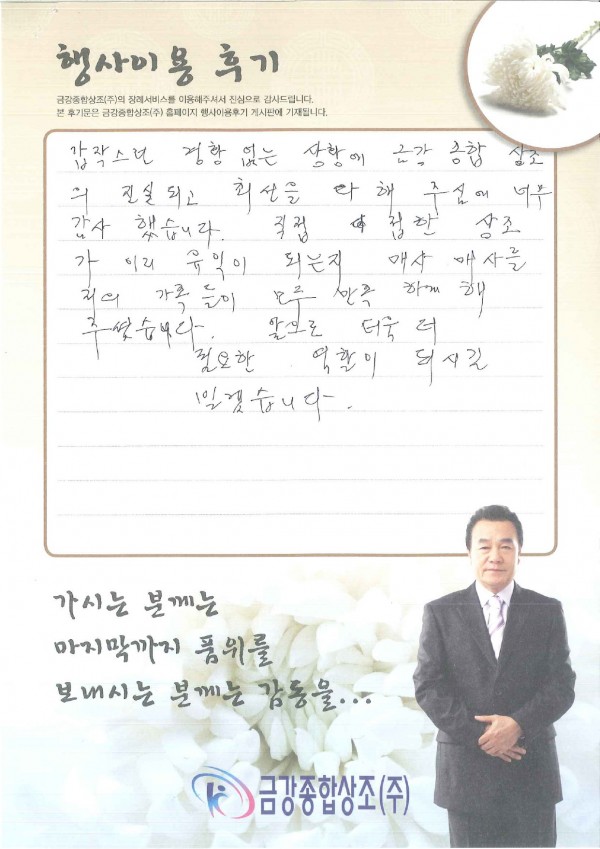 행사이용 후기
금강종합상조(주)의 장례서비스를 이용해주셔서 진심으로 감사드립니다.
본 후기문은 금강종합상조(주) 홈페이지 행사이용후기 게시판에 기재됩니다.
갑작스런 경황 없는 상황에 금강 종합 상조
의 진실되고 최선을 다 해 주심에 너무
감사 했습니다. 직접 접한 상조
가 이리 유익이 되는지 매사 매사를
저의 가족들이 모두 만족 하게 해
주셨습니다. 앞으로 더욱 더
필요한 역할이 되시길
빌겠습니다.
가시는 분께는
마지막까지 품위를
보내시는 분께는 감동을...
금강종합상조(주)